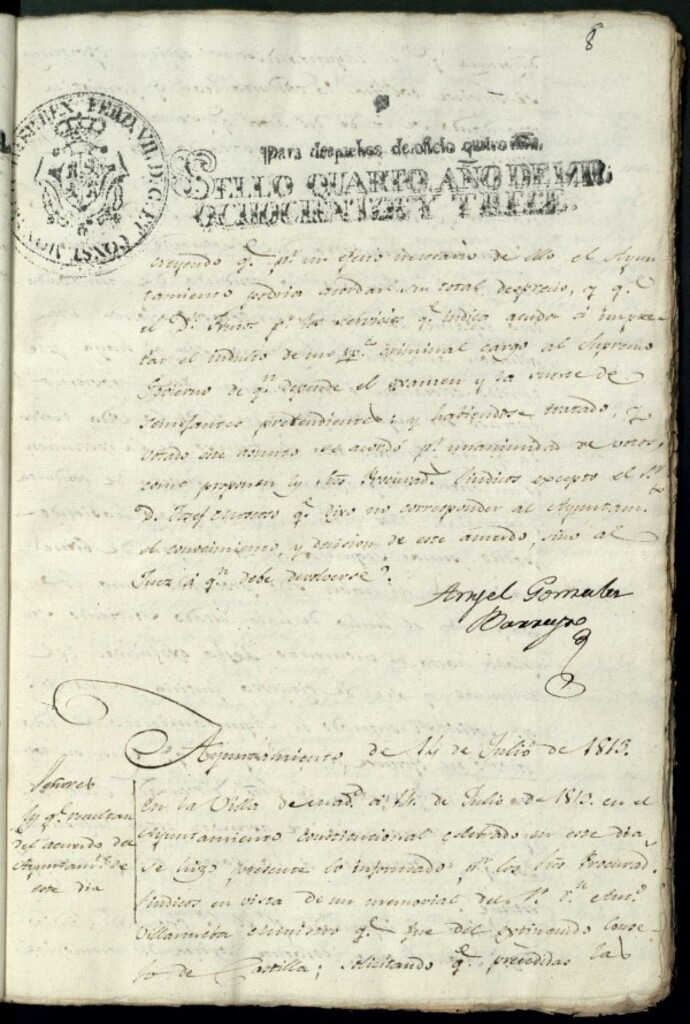 8
HISP. REX. FERD. VII. D. G. ET CONST. MON.
Para despachos de oficio quatro mrs.
SELLO QUARTO, AÑO DE MIL
OCHOCIENTOS Y TRECE.
creyendo qe. pr. un efecto necesario de ello el Ayun-
tamiento podria acordar su total desprecio, y qe.
el Dn. pr. los servicios qe. indica acuda á impe-
trar el indulto de su criminal cargo al Supremo
Gobierno de qn. depende el examen y la suerte de
semejantes pretendientes; y habiendose tratado, y
votado este asunto se acordó pr. unanimidad de votos,
como proponen los Sres Procurads. Sindicos excepto el Sr.
D. Josef qe. dixo no corresponder al Ayuntamto.
el conocimiento, y decision de este acuerdo, sino al
Juez á qn. debe devolverse.
Angel Gonzalez
Barreyro
Ayuntamiento de 14 de Julio de 1813.
Señores
los qe. resultan
del acuerdo del
Ayuntamto. de
este dia
En la Villa de Madd. á 14. de Julio de 1813. en el
Ayuntamiento constitucional celebrado en este dia
Se hizo presente lo informado pr. los Sres Procurads.
Sindicos en vista de un memorial del Sr. Dn. Antº.
Villanueba ministro qe. fue del extinguido Conse-
jo de Castilla; solicitando qe. precedidas las